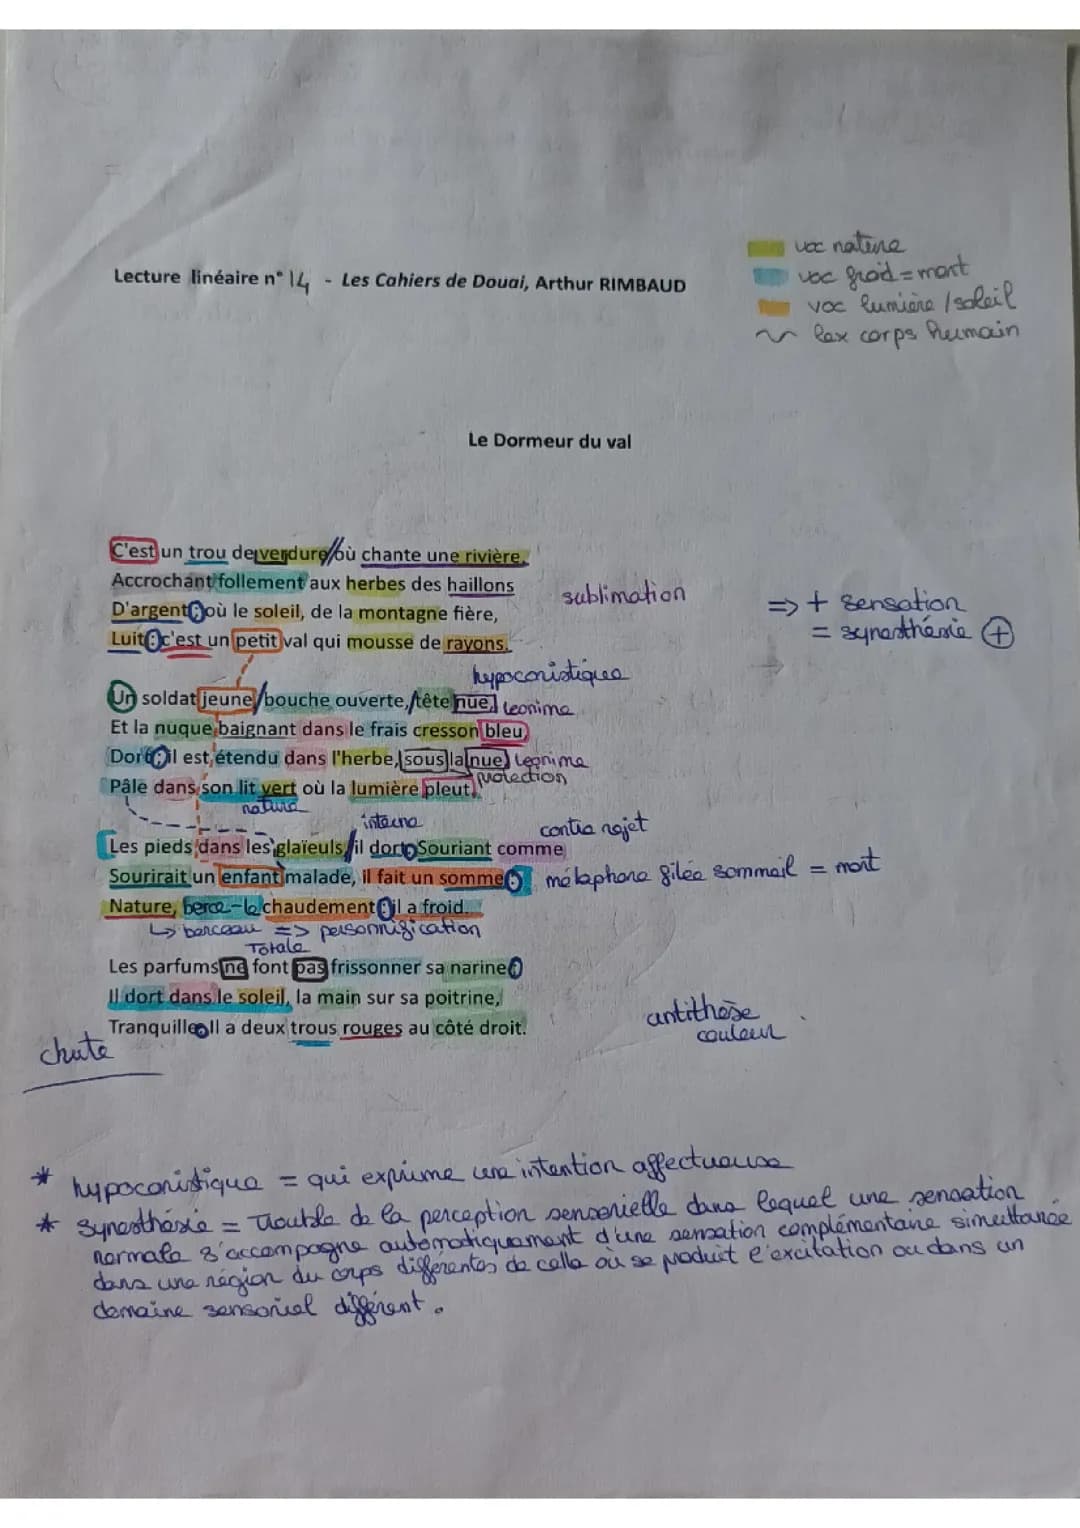 voc nature
voc froid = mort
Lecture linéaire n° 14 - Les Cahiers de Douai, Arthur RIMBAUD
voc lumière / soleil
lex corps humain
Le Dormeur du val
C'est un trou de verdure // où chante une rivière,
Accrochant follement aux herbes des haillons
sublimation
=> + sensation
D'argent ; où le soleil, de la montagne fière,
= synesthésie +
Luit : c'est un petit val qui mousse de rayons.
hypoconistique
Un soldat jeune / bouche ouverte, / tête nue, leonime
Et la nuque baignant dans le frais cresson bleu,
Dort ; il est étendu dans l'herbe, sous la nue, leonime
protection
Pâle dans son lit vert où la lumière pleut.
nature
interne
contre rejet
Les pieds dans les glaïeuls, // il dort. Souriant comme
Sourirait un enfant malade, il fait un somme : métaphore filée sommeil = mort
Nature, berce-le chaudement : il a froid.
↳ berceau => personnification
Totale
Les parfums ne font pas frissonner sa narine ;
Il dort dans le soleil, la main sur sa poitrine,
antithèse
Tranquille. Il a deux trous rouges au côté droit.
couleur
chute
* hypoconistique = qui exprime une intention affectueuse
* synesthésie = Trouble de la perception sensorielle dans lequel une sensation
normale s'accompagne automatiquement d'une sensation complémentaire simultanée
dans une région du corps différentes de celle où se produit l'excitation ou dans un
domaine sensoriel différent.